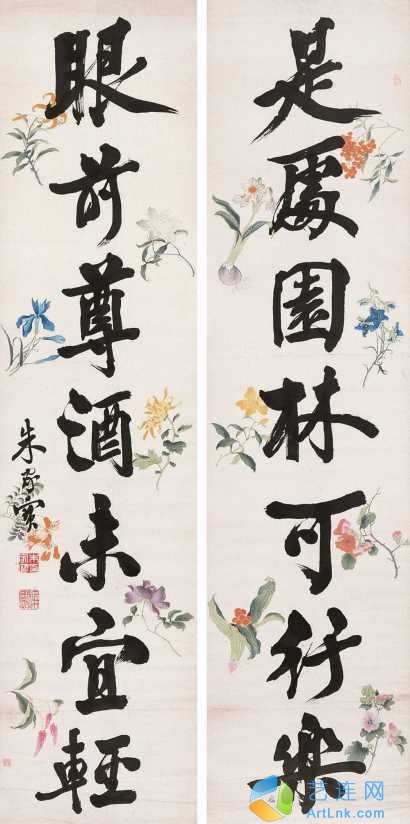 是處園林可行樂
眼前尊酒未宜輕
朱家寶
艺连网
ArtLnk.com